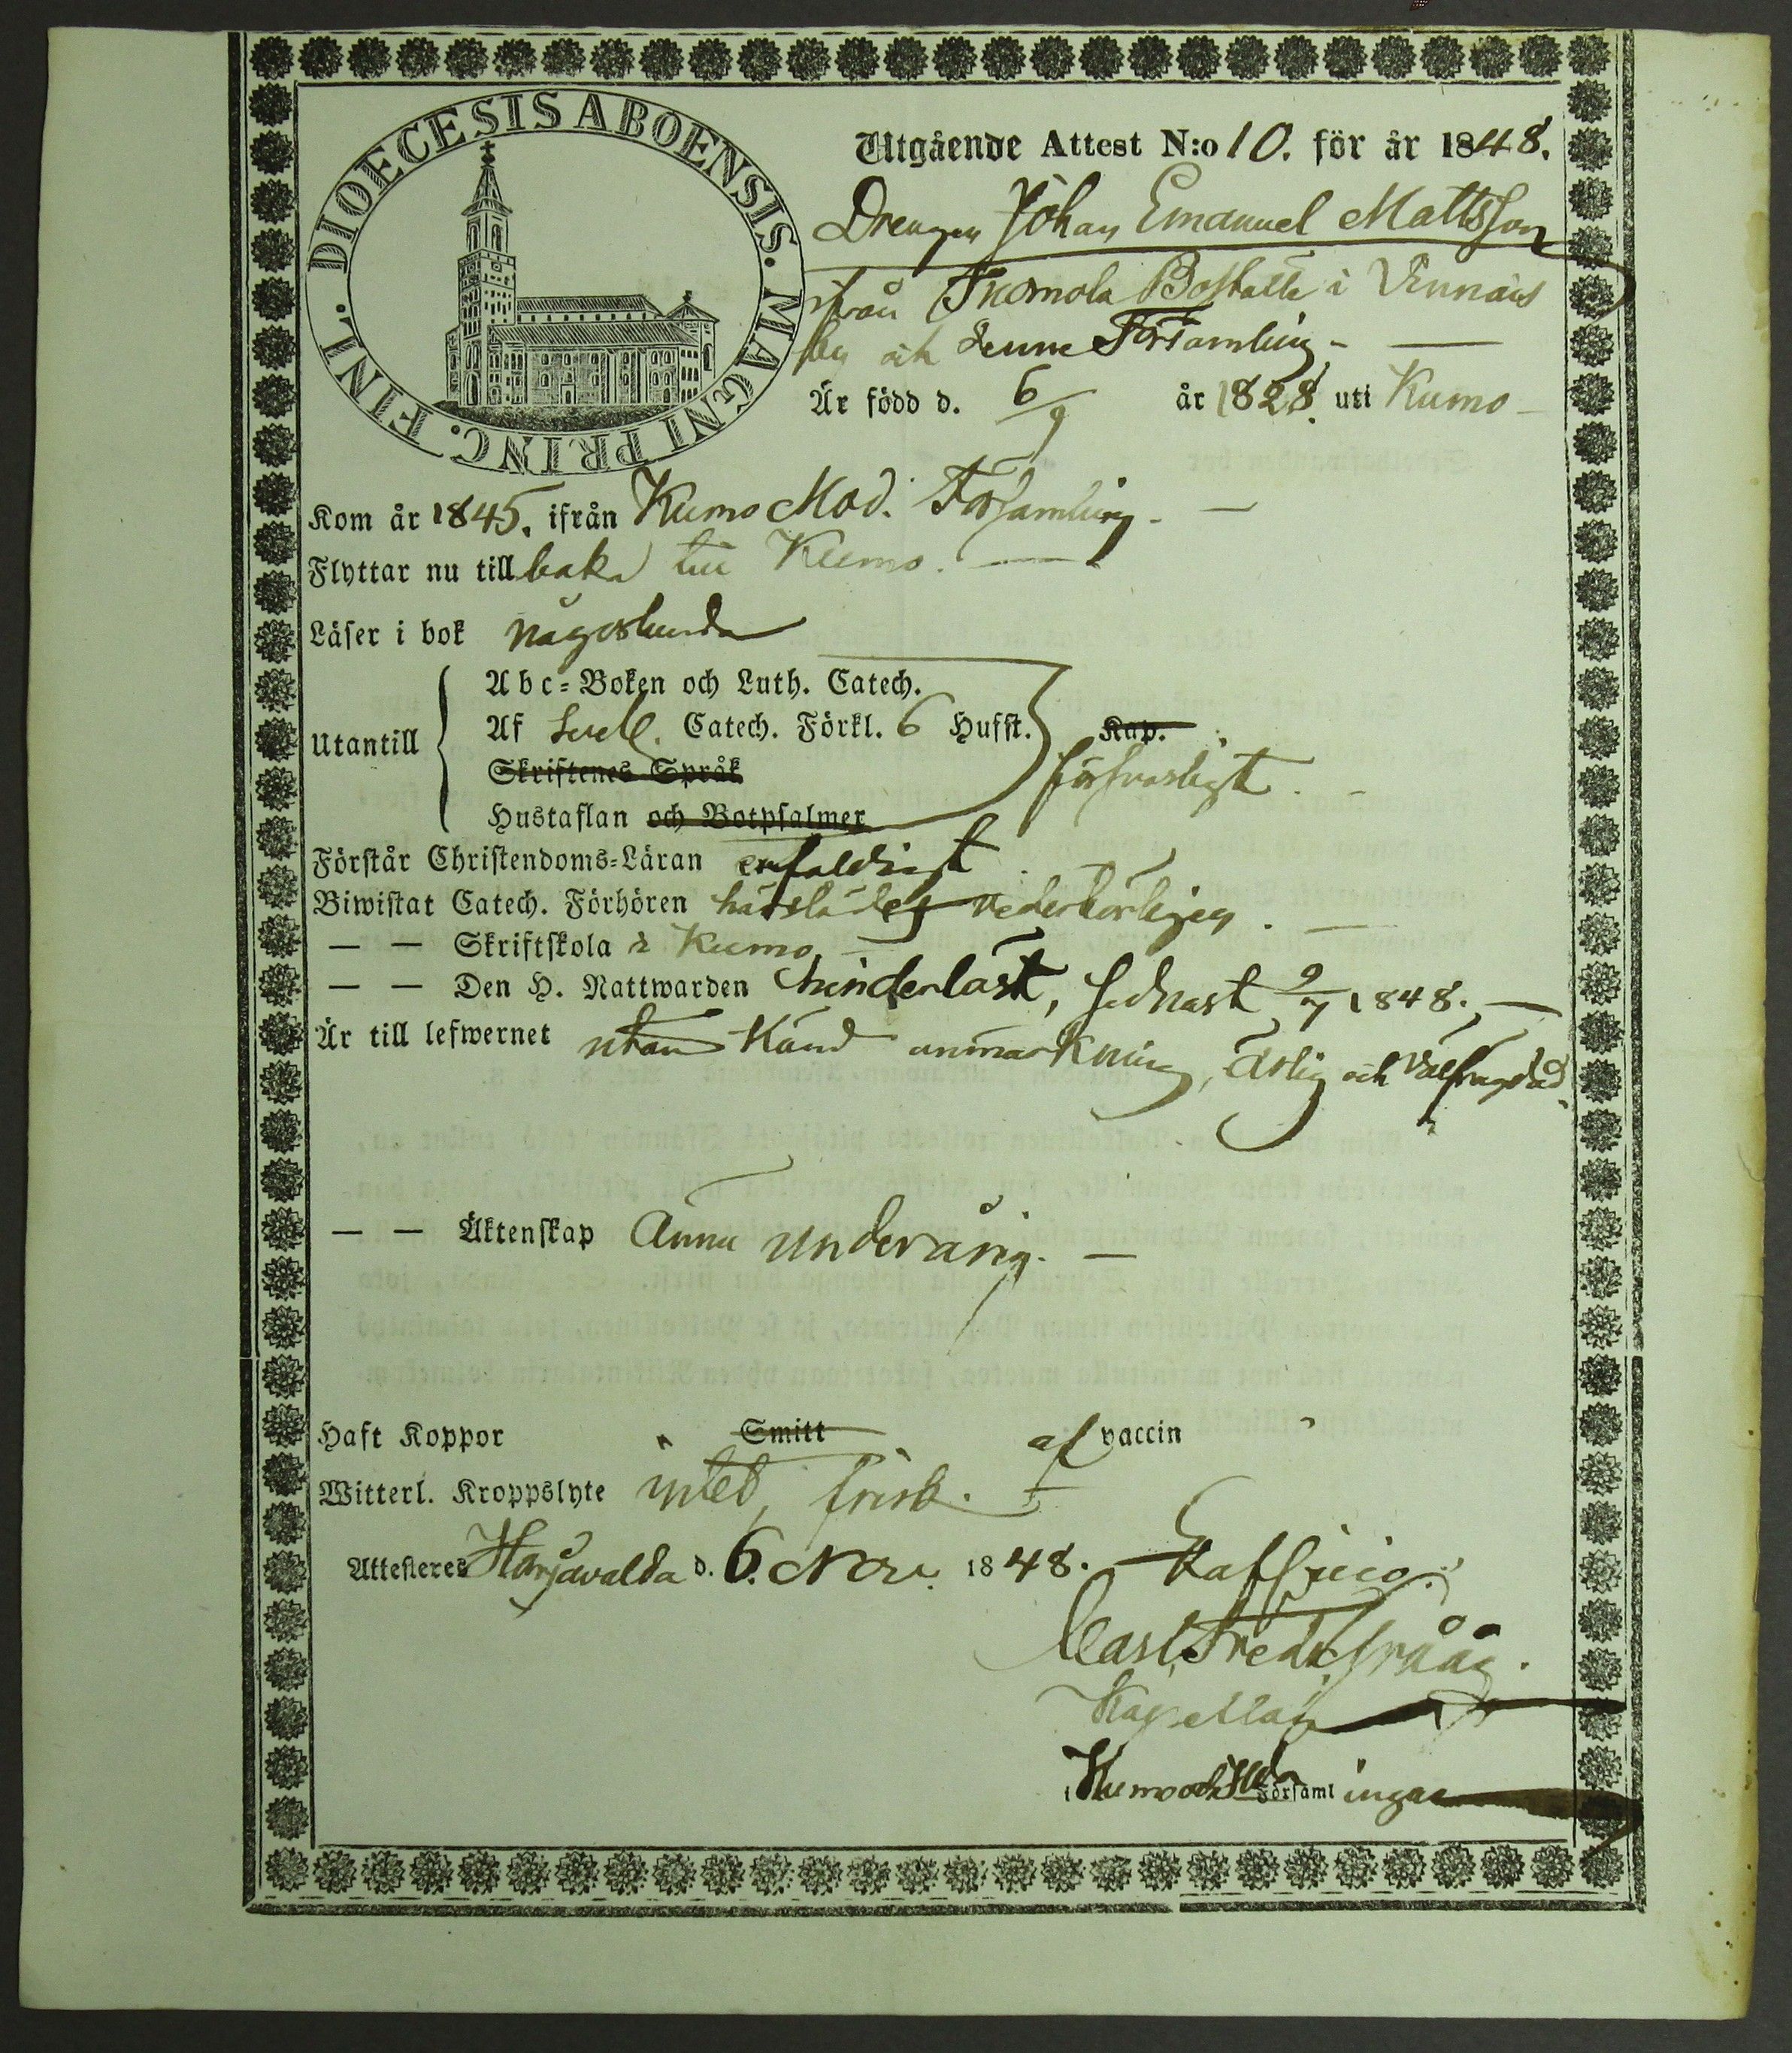 DIOECESIS ABOENSIS. MAGNI PRINC. FINL.
Utgående Attest N:o 10. för år 1848.
Drengen Johan Emanuel Mattsson
ifrån Tuomola Boställe i Vinnäs
by och denne Församling -
Är född d. 6/9 år 1828. uti Kumo
Kom år 1845. ifrån Kumo Mod. Församling.
Flyttar nu tillbaka till Kumo.
Läser i bok någorlunda
Utantill
Abc-Boken och Luth. Catech.
Af Sveb. Catech. Förkl. 6 Hufst. Kap.
Skriftenes Språk
försvarligt.
Hustaflan och Botpsalmer
Förstår Christendoms-Läran enfaldigt.
Biwistat Catech. Förhören härstädes vederbörligen.
— — Skriftskola i Kumo
— — Den H. Nattwarden hinderlöst, sednast 9/7 1848.
Är till lefwernet utan känd anmärkning, ärlig och välfrägdad
— — Äktenskap Ännu underårig.
Haft Koppor Smitt af vaccin
Witterl. Kroppslyte intet, frisk.
Attesteres Harjavalda d. 6. Nov. 1848.
Carl Fredr
Kapellan
i Kumo och Församlingar